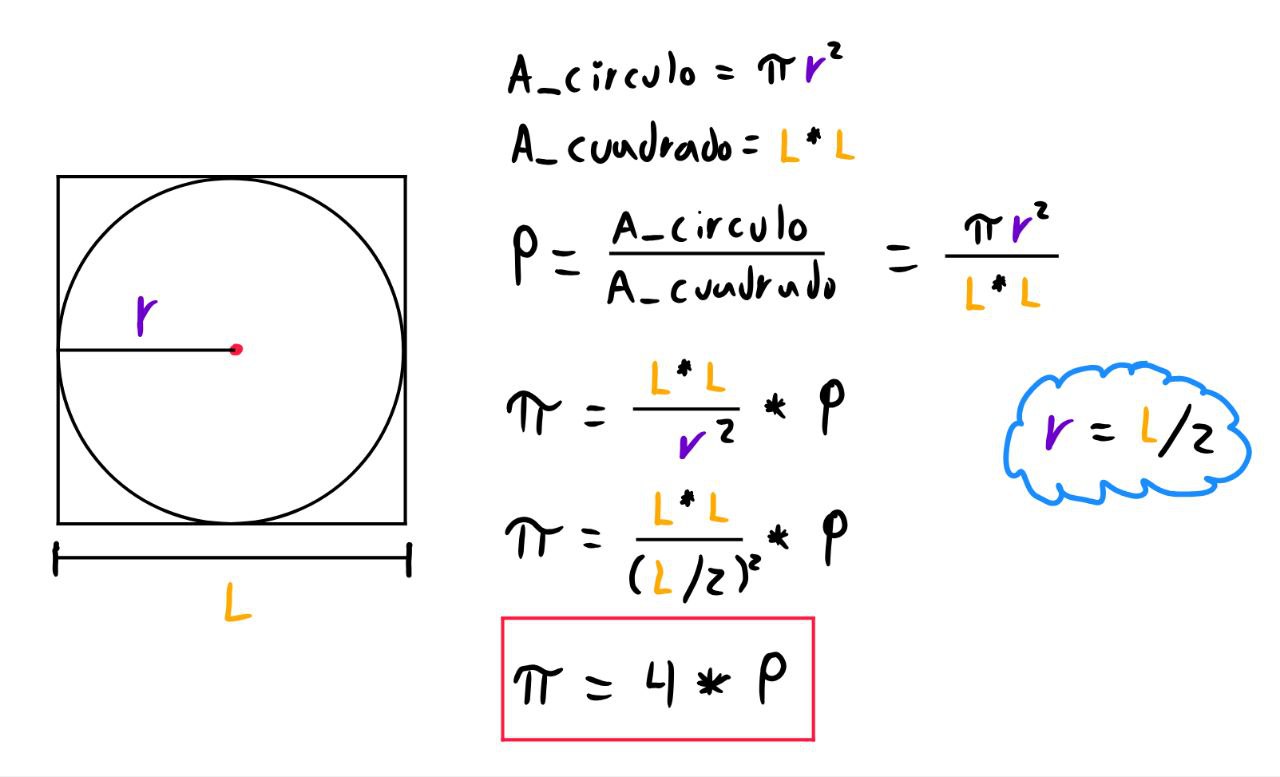 A_circulo = πr²
A_cuadrado = L * L
P = A_circulo / A_cuadrado = πr² / L * L
r
π = L * L / r² * P
r = L/2
π = L * L / (L/2)² * P
L
π = 4 * P